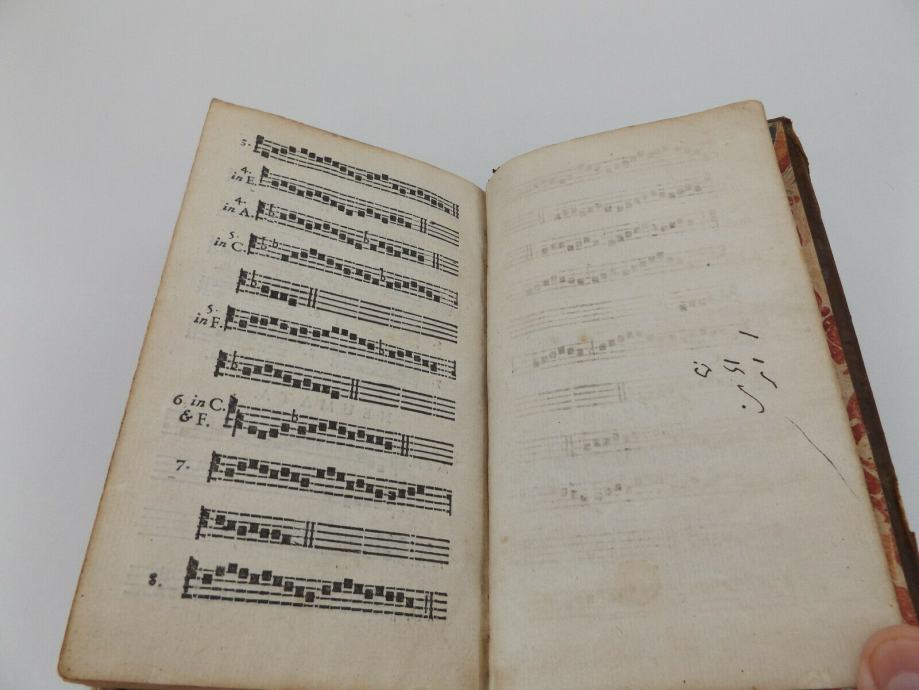 3.
4.
in E.
4.
in A.
5.
in C.
5.
in F.
6. in C.
& F.
7.
8.